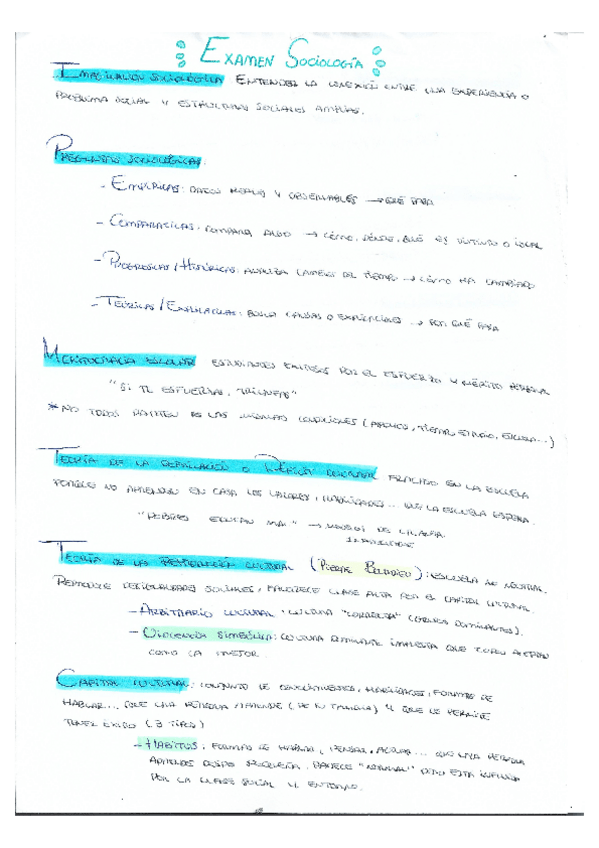 EXAMEN SOCIOLOGÍA
IMAGINACIÓN SOCIOLÓGICA ENTENDER LA CONEXIÓN ENTRE UNA EXPERIENCIA O
PROBLEMA SOCIAL Y ESTRUCTURAS SOCIALES AMPLIAS.
PREGUNTAS SOCIOLÓGICAS
- EMPÍRICAS: DATOS REALES Y OBSERVABLES → QUÉ PASA
- COMPARATIVAS: COMPARA ALGO → CÓMO, DÓNDE, QUÉ ES DISTINTO O IGUAL
- PROGRESIVAS / HISTÓRICAS: ANALIZA CAMBIOS DEL TIEMPO → CÓMO HA CAMBIADO
- TEÓRICAS / EXPLICATIVAS: BUSCA CAUSAS O EXPLICACIONES → POR QUÉ PASA
MERITOCRACIA ESCOLAR ESTUDIANTES EXITOSOS POR EL ESFUERZO Y MÉRITO PERSONAL
"SI TE ESFUERZAS, TRIUNFAS"
* NO TODOS PARTEN DE LAS MISMAS CONDICIONES (APOYO, TIEMPO ESTUDIO, ESCUELA...)
TEORÍA DE LA DEPRIVACIÓN O DÉFICIT CULTURAL FRACASO EN LA ESCUELA
PORQUE NO APRENDEN EN CASA LOS VALORES, HABILIDADES... QUE LA ESCUELA ESPERA.
"POBRES EDUCAN MAL" → DE
TEORÍA DE LA REPRODUCCIÓN CULTURAL (PIERRE BOURDIEU): ESCUELA NO NEUTRAL.
REPRODUCE DESIGUALDADES SOCIALES, FAVORECE CLASE ALTA POR EL CAPITAL CULTURAL.
- ARBITRARIO CULTURAL: CULTURA "CORRECTA" (GRUPOS DOMINANTES).
- VIOLENCIA SIMBÓLICA: CULTURA DOMINANTE IMPUESTA QUE TODOS ACEPTAN
COMO LA MEJOR.
CAPITAL CULTURAL: CONJUNTO DE CONOCIMIENTOS, HABILIDADES, FORMAS DE
HABLAR... QUE UNA PERSONA APRENDE (DE SU FAMILIA) Y QUE LE PERMITE
TENER ÉXITO (3 TIPOS)
- HABITUS: FORMAS DE HABLAR, PENSAR, ACTUAR... QUE UNA PERSONA
APRENDE DESDE PEQUEÑA. PARECE "NORMAL" PERO ESTÁ INFLUIDA
POR LA CLASE SOCIAL Y ENTORNO.